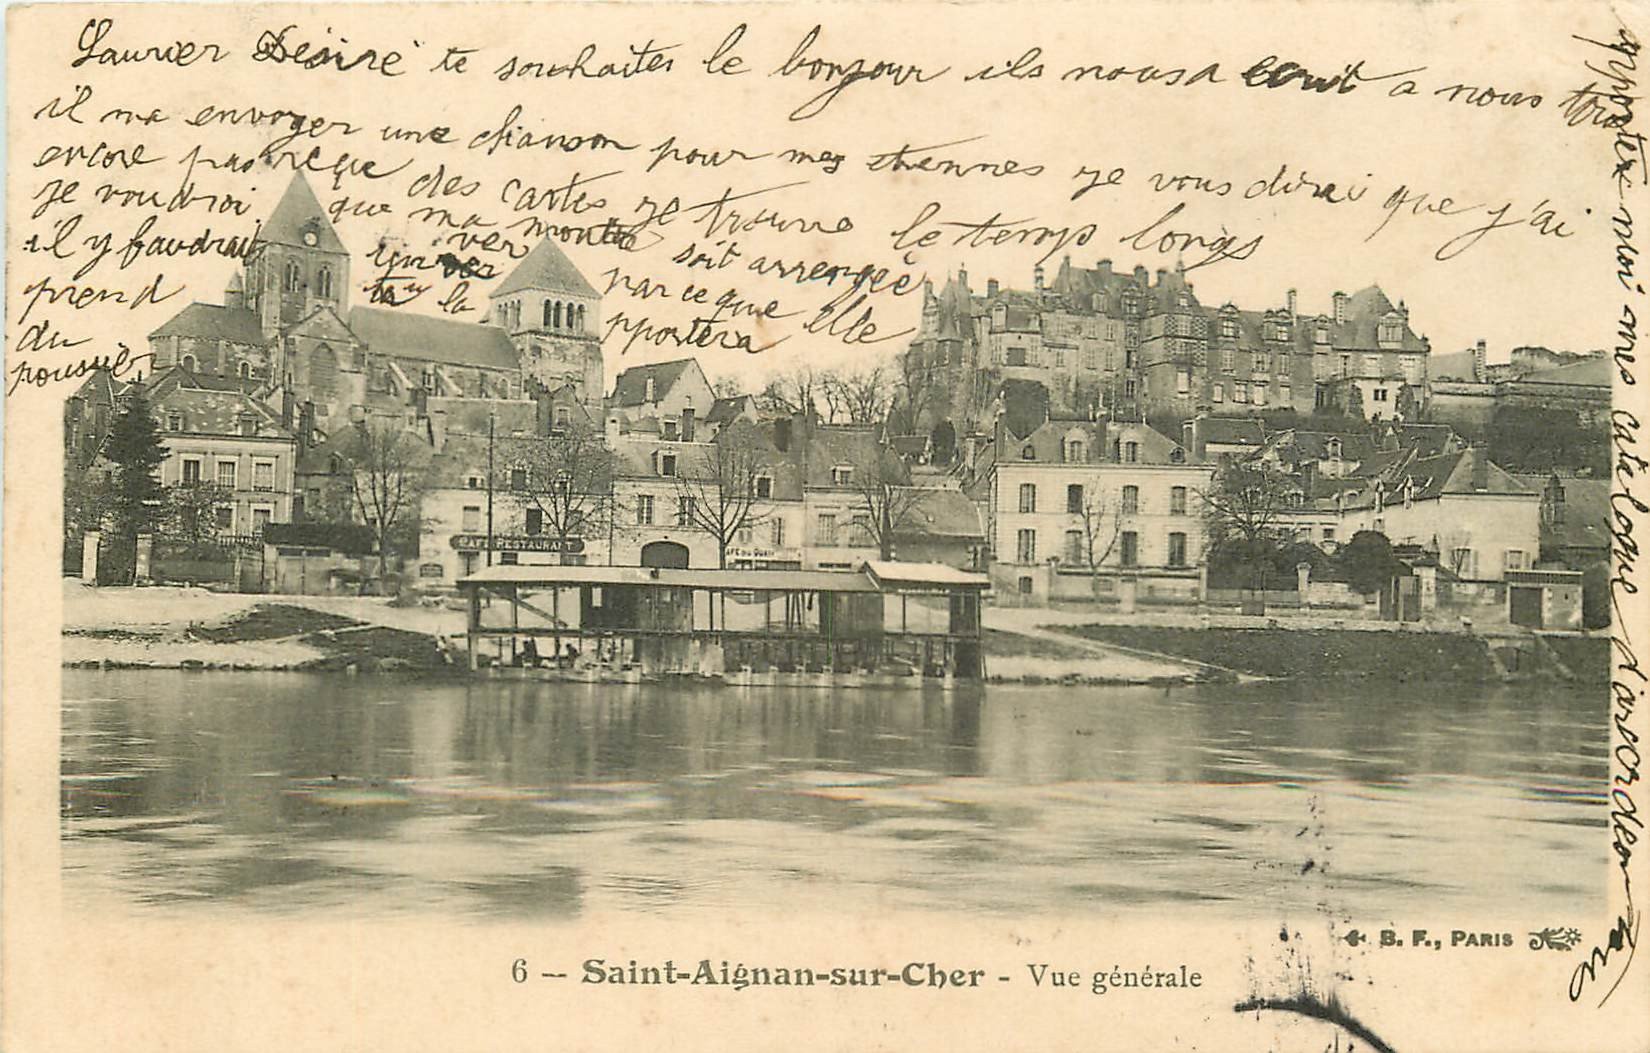 Laurier Désiré te souhaites le bonjour ils nousa écrit a nous tous
il ma envoyer une chanson pour mes etrennes je vous dirai que j'ai
encore pas reçue des cartes je trouve le temps longs
je voudroi que ma montre soit arrengée
il y faudrait ver parceque elle
prend la pportera
du
poussièr
apporter moi mes catalogue d'arcordeon
CAFÉ RESTAURANT
CAFÉ DU QUAI
B. F., PARIS
6 — Saint-Aignan-sur-Cher - Vue générale